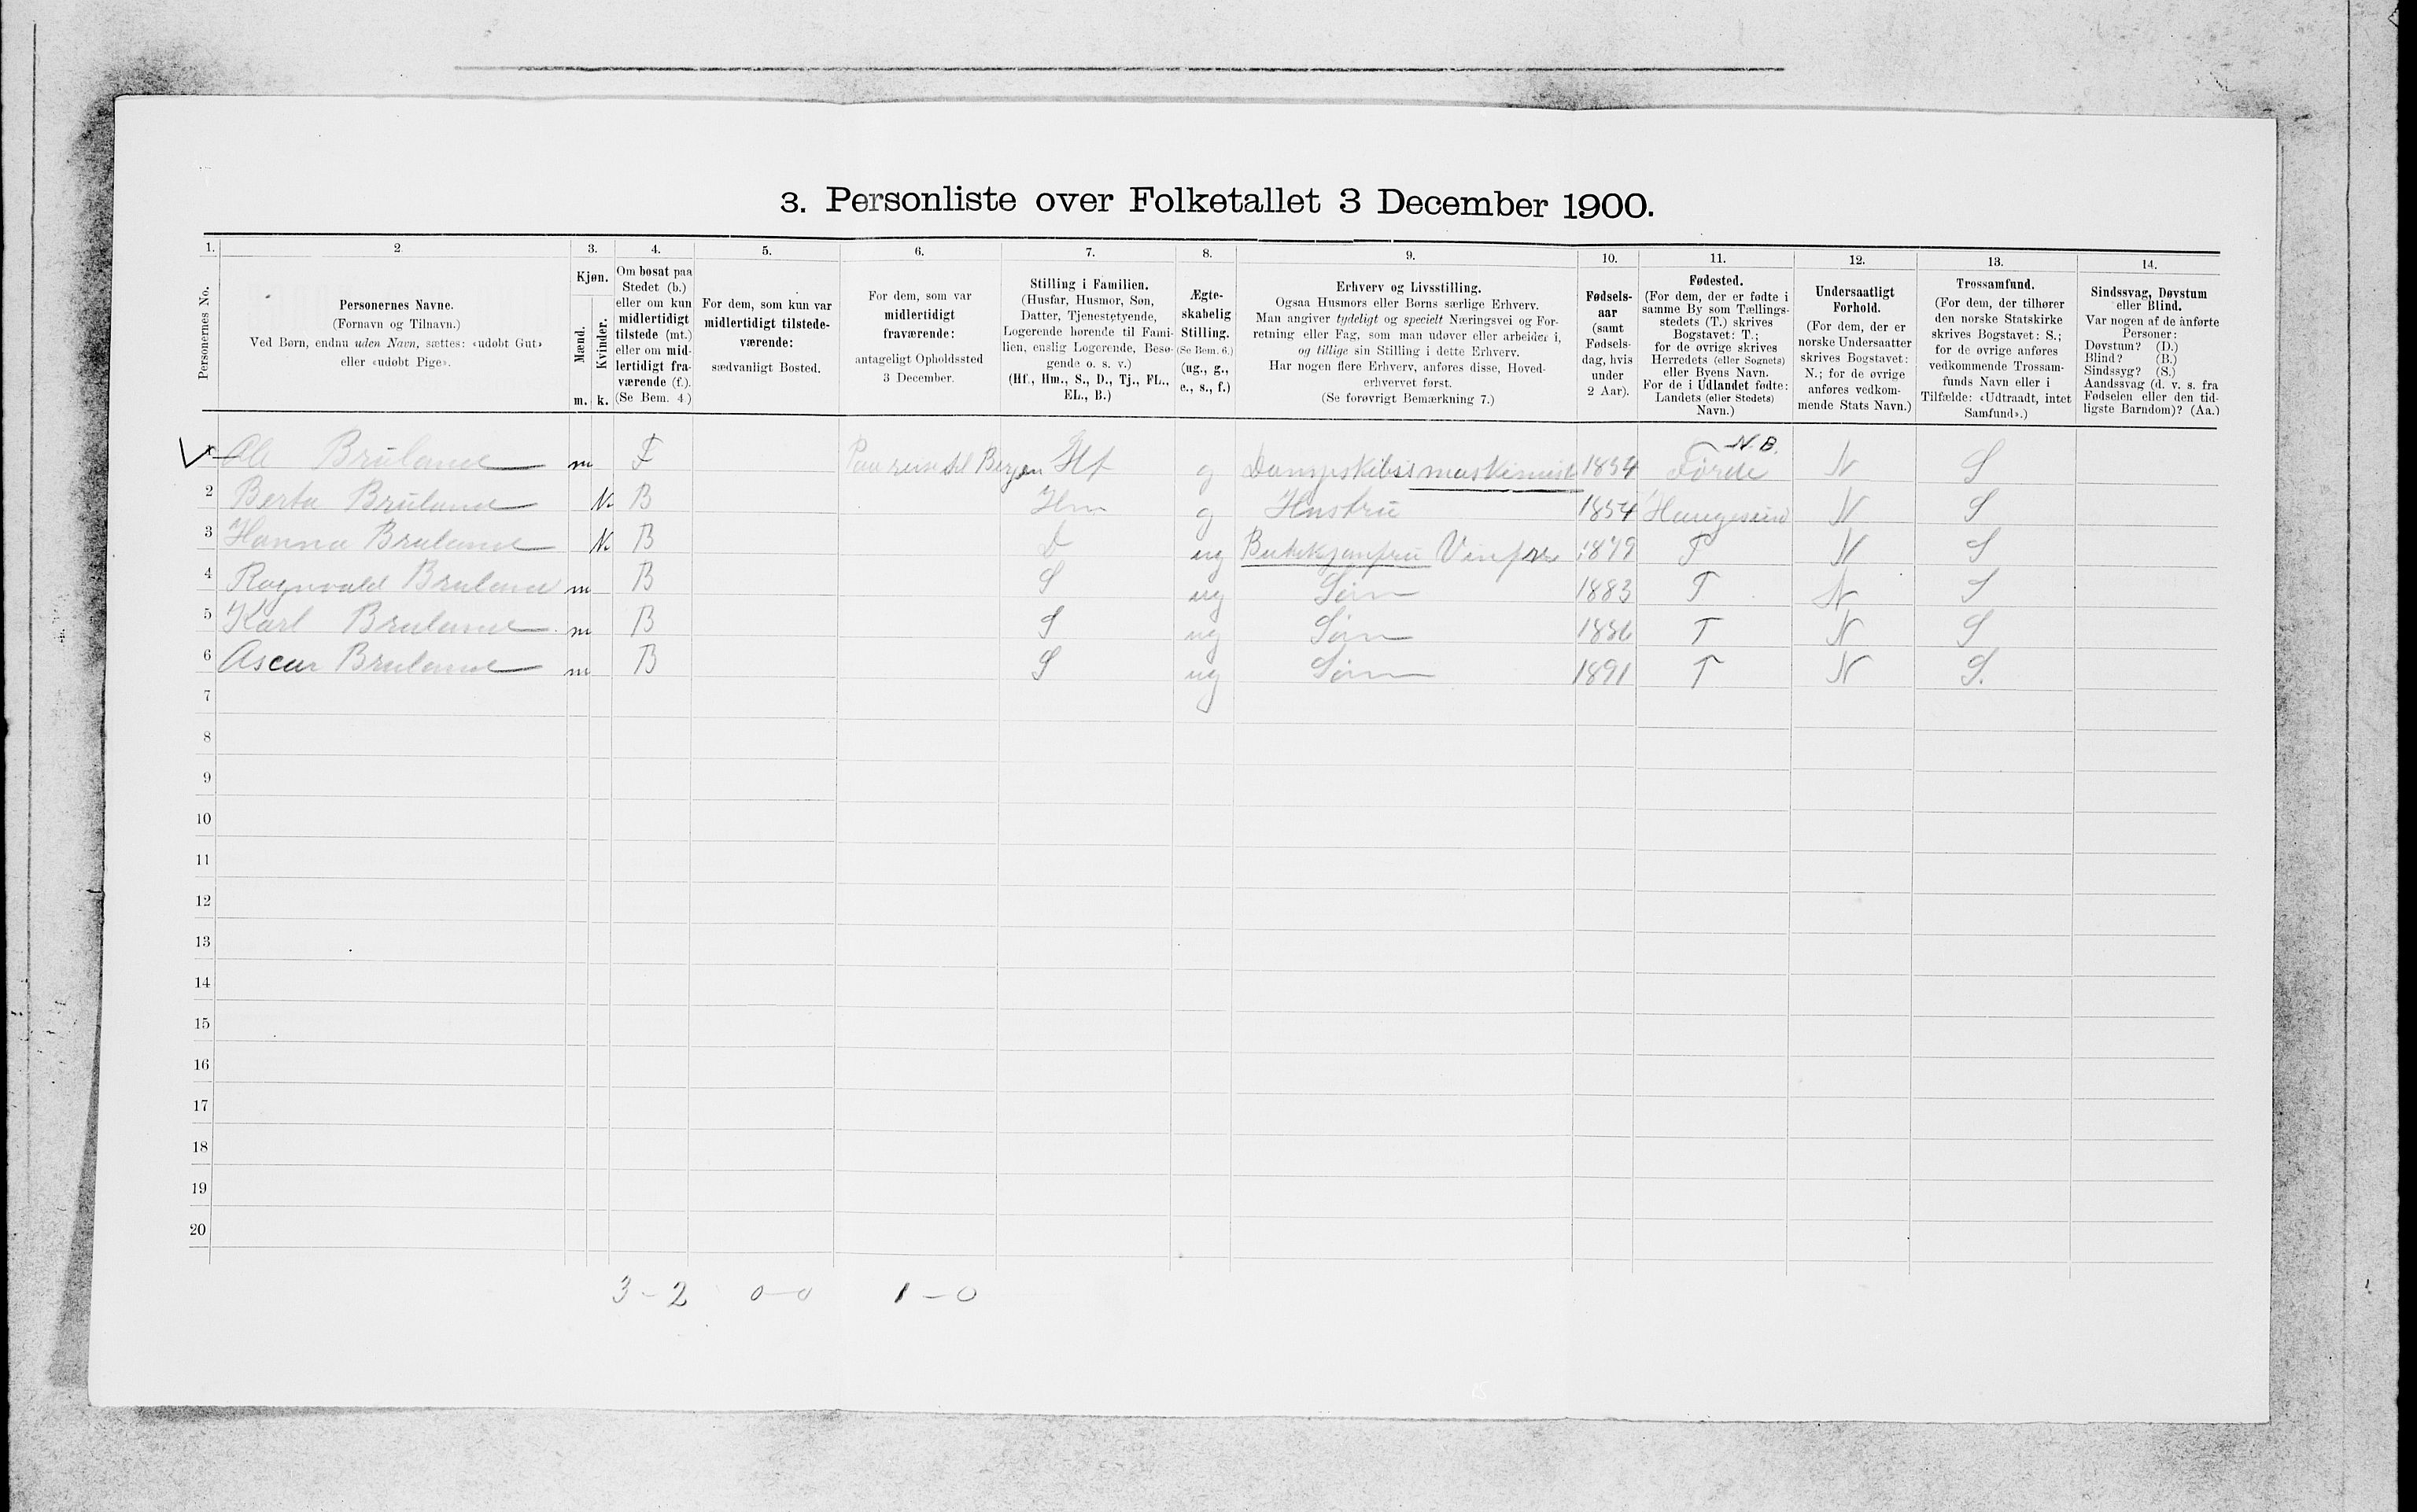 3. Personliste over Folketallet 3 December 1900.
1. 2. 3. 4. 5. 6. 7. 8. 9. 10. 11. 12. 13. 14.
Personernes No.
Personernes Navne.
(Fornavn og Tilnavn.)
Ved Børn, endnu uden Navn, sættes: «udøbt Gut»
eller «udøbt Pige».
Kjøn.
Mænd.
Kvinder.
m. k.
Om bosat paa
Stedet (b.)
eller om kun
midlertidigt
tilstede (mt.)
eller om mid-
lertidigt fra-
værende (f.).
(Se Bem. 4.)
For dem, som kun var
midlertidigt tilstede-
værende:
sædvanligt Bosted.
For dem, som var
midlertidigt
fraværende:
antageligt Opholdssted
3 December.
Stilling i Familien.
(Husfar, Husmor, Søn,
Datter, Tjenestetyende,
Logerende hørende til Fami-
lien, enslig Logerende, Besø-
gende o. s. v.)
(Hf., Hm., S., D., Tj., FL.,
EL., B.)
Ægte-
skabelig
Stilling.
(Se Bem. 6.)
(ug., g.,
e., s., f.)
Erhverv og Livsstilling.
Ogsaa Husmors eller Børns særlige Erhverv.
Man angiver tydeligt og specielt Næringsvei og For-
retning eller Fag, som man udøver eller arbeider i,
og tillige sin Stilling i dette Erhverv.
Har nogen flere Erhverv, anføres disse, Hoved-
erhvervet først.
(Se forøvrigt Bemærkning 7.)
Fødsels-
aar
(samt
Fødsels-
dag, hvis
under
2 Aar).
Fødested.
(For dem, der er fødte i
samme By som Tællings-
stedets (T.) skrives
Bogstavet: T.;
for de øvrige skrives
Herredets (eller Sognets)
eller Byens Navn.
For de i Udlandet fødte:
Landets (eller Stedets)
Navn.)
Undersaatligt
Forhold.
(For dem, der er
norske Undersaatter
skrives Bogstavet:
N.; for de øvrige
anføres vedkom-
mende Stats Navn.)
Trossamfund.
(For dem, der tilhører
den norske Statskirke
skrives Bogstavet: S.;
for de øvrige anføres
vedkommende Trossam-
funds Navn eller i
Tilfælde: «Udtraadt, intet
Samfund».)
Sindssvag, Døvstum
eller Blind.
Var nogen af de anførte
Personer:
Døvstum? (D.)
Blind? (B.)
Sindssyg? (S.)
Aandssvag (d. v. s. fra
Fødselen eller den tid-
ligste Barndom)? (Aa.)
N.B.
Ole Bruland m F Paa reise til Bergen Hf g Dampskibsmaskinist 1854 Førde N S
2 Berta Bruland k B Hm g Hustru 1854 Haugesund N S
3 Hanna Bruland k B D ug 1879 T N S
4 Ragnvald Bruland m B S ug Søn 1883 T N S
5 Karl Bruland m B S ug Søn 1886 T N S
6 Ascar Bruland m B S ug Søn 1891 T N S.
7
8
9
10
11
12
13
14
15
16
17
18
19
20
3 - 2 0 - 0 1 - 0